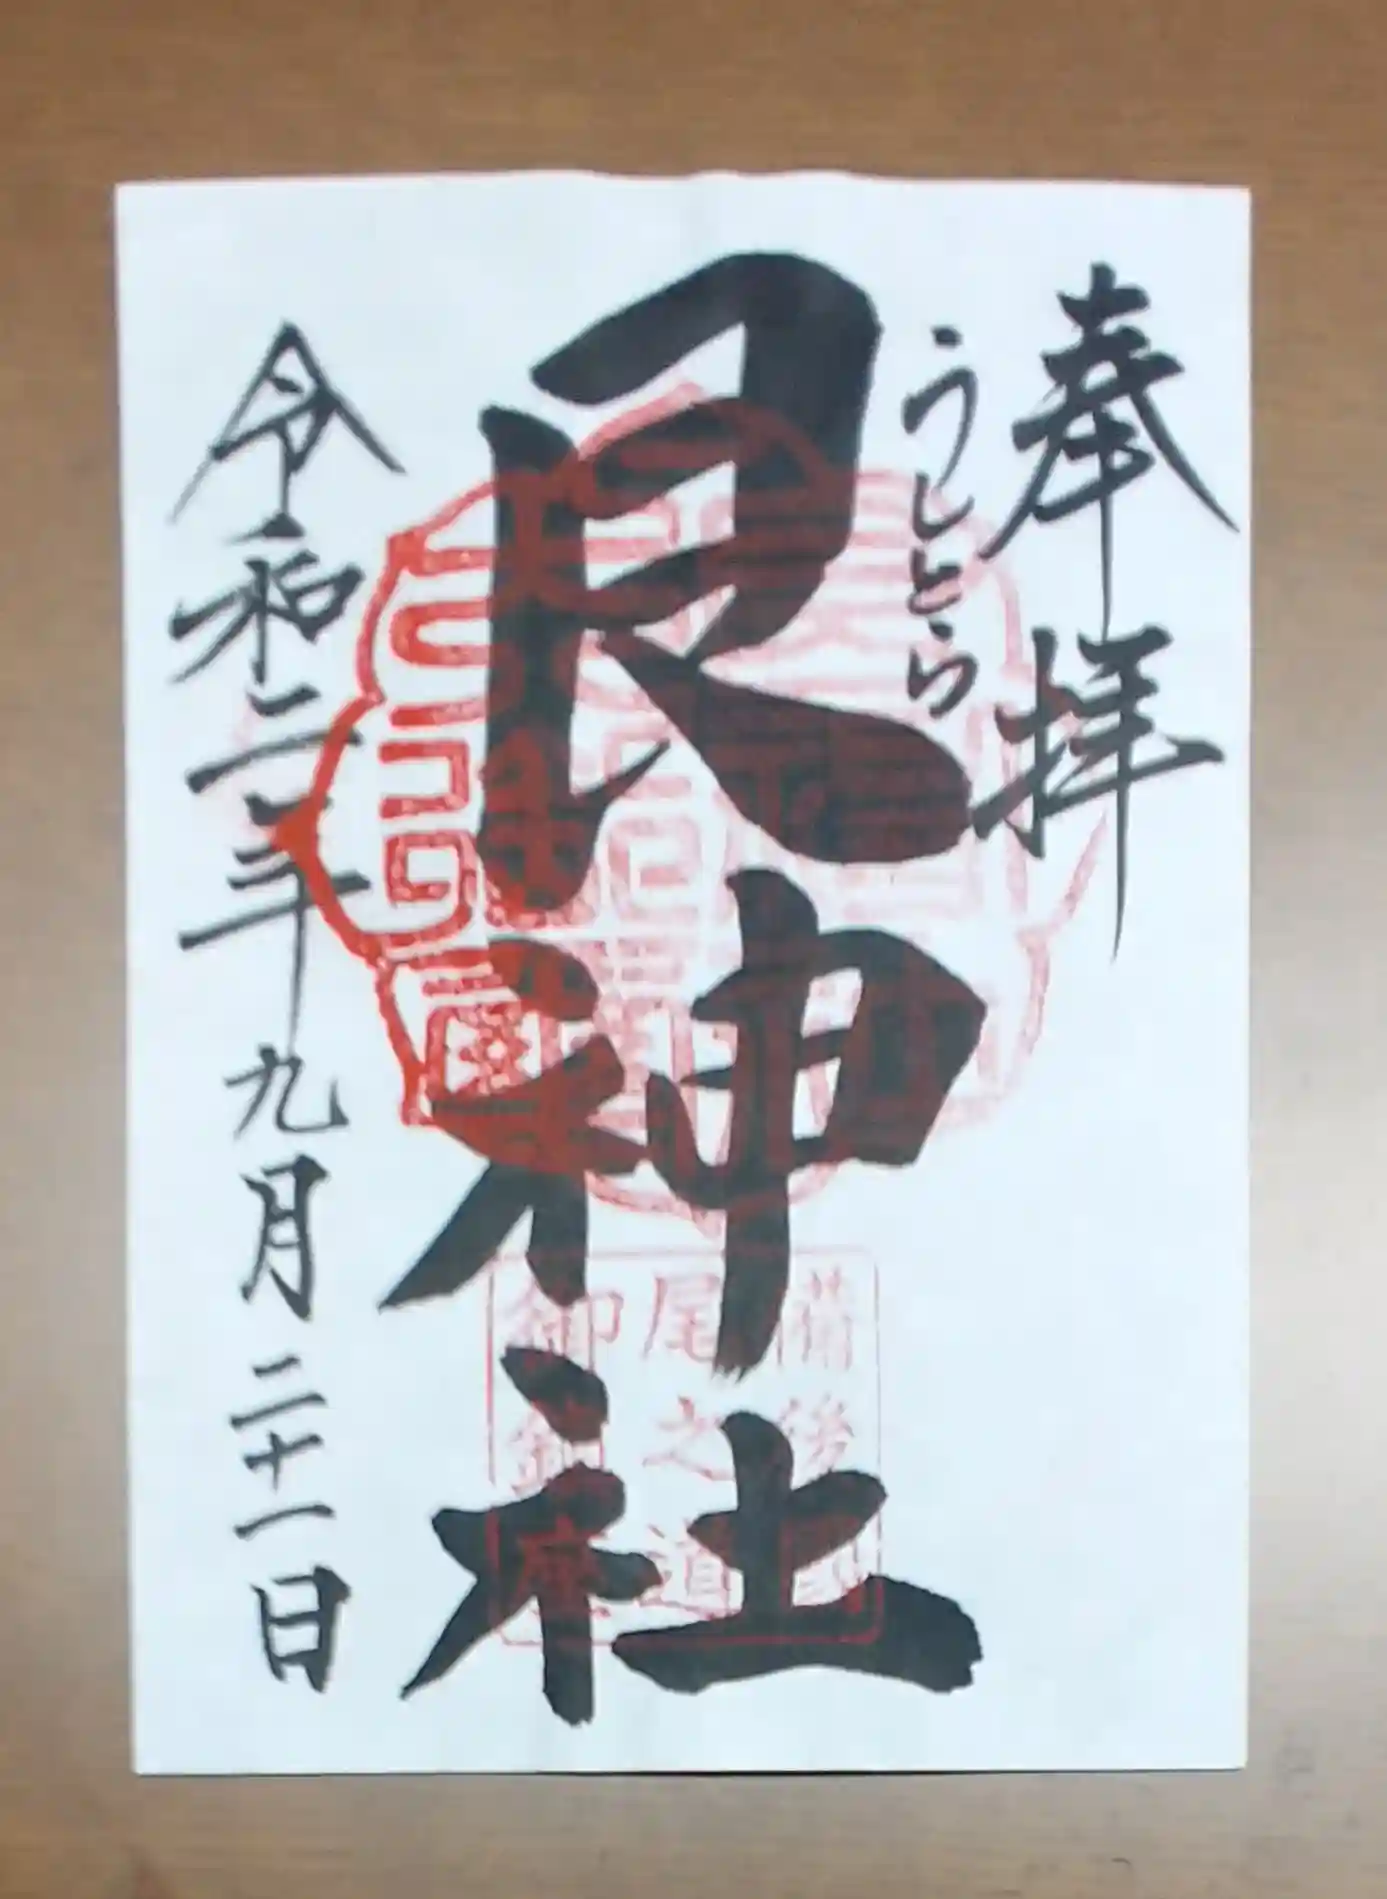 奉拝
うしとら
艮神社
備後国
尾之道
御鎮座
令和二年九月二十一日